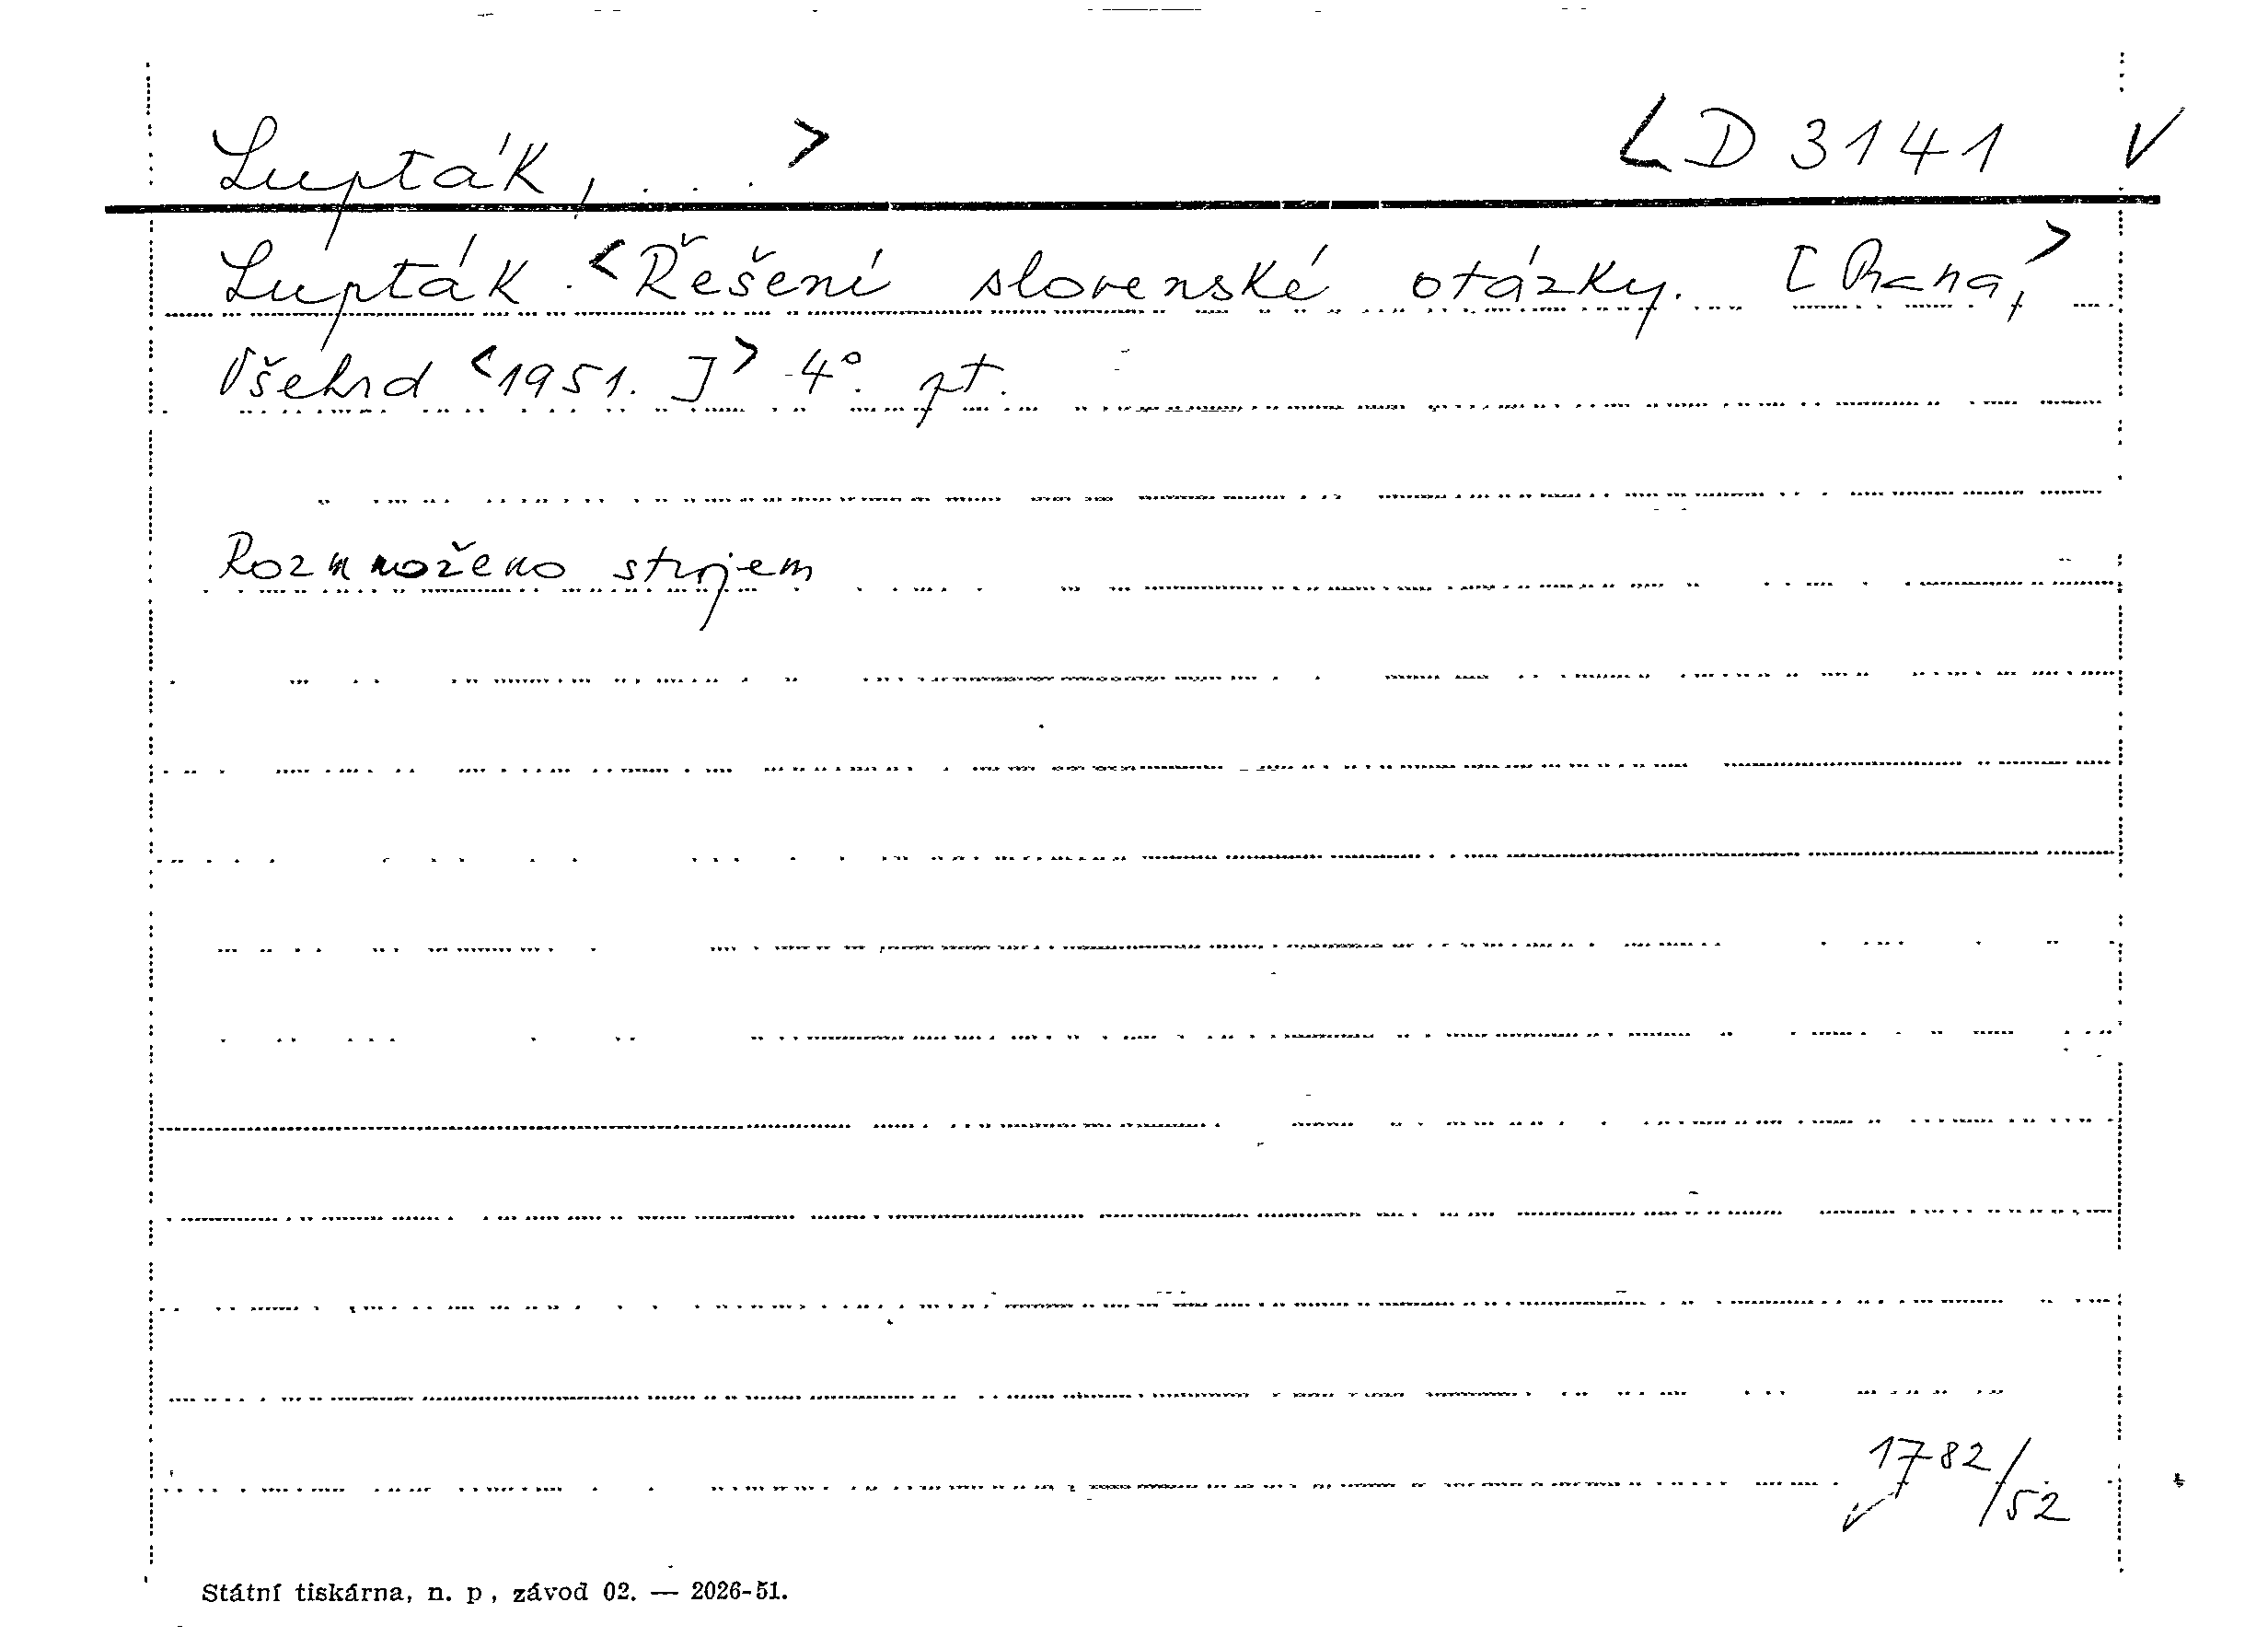 Lupták, . . . > <D 3141 V
Lupták. <Řešení slovenské otázky. [Praha,>
Všehrd <1951. ]> 4°. pt.
Rozmnoženo strojem
1782/52
Státní tiskárna, n. p, závod 02. — 2026-51.